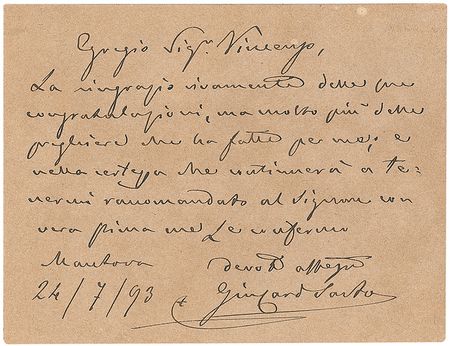 Egregio Sigr. Vincenzo,
La ringrazio vivamente delle sue
congratulazioni, ma molto più delle
preghiere che ha fatte per me; e
nella certezza che continuerà a te-
nermi raccomandato al Signore con
vera stima me Le confermo
Mantova
24/7/93
+ Gius. Card. Sarto